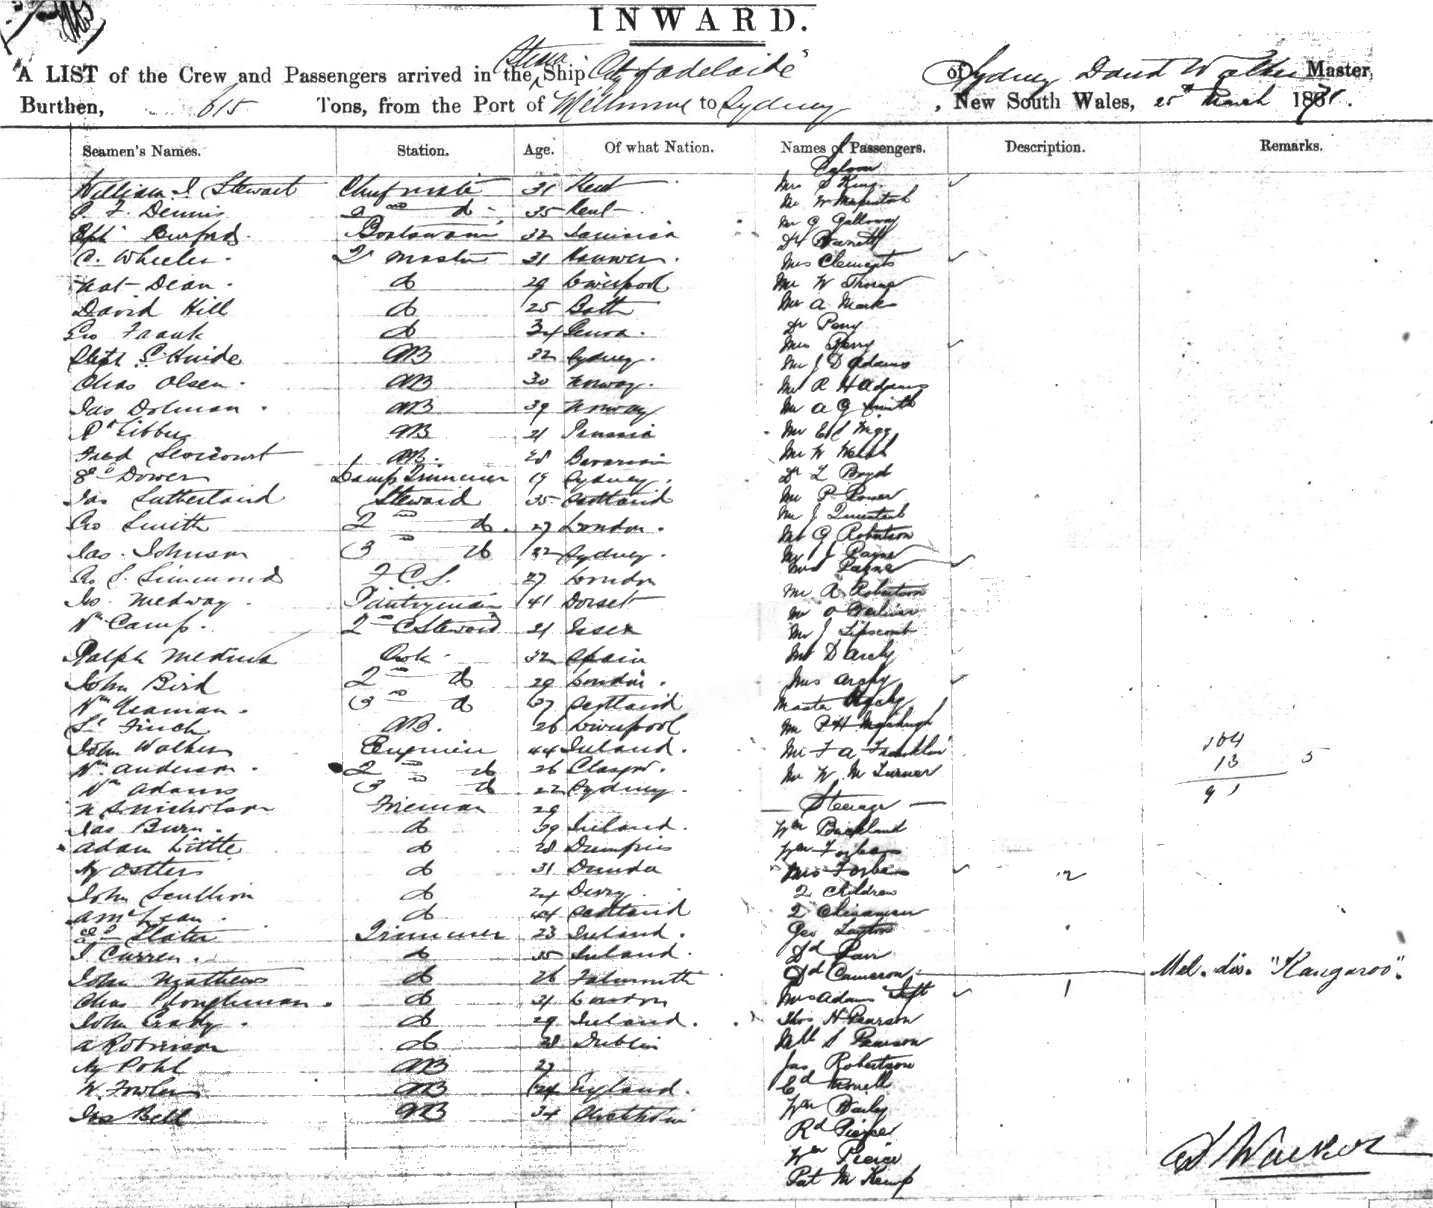 INWARD.
A LIST of the Crew and Passengers arrived in the Ship City of Adelaide of Sydney David Walker Master,
Burthen, 615 Tons, from the Port of Melbourne to Sydney, New South Wales, 25th March 1871.
Seamen's Names. Station. Age. Of what Nation. Names of Passengers. Description. Remarks.
Saloon
William J Stewart Chief mate 31 Kent Mrs S King
P. F. Dennis 2nd do 35 Kent Mr W
Burford Boatswain 32 Jamaica Mr G Galloway
C. Wheeler 2r master 31 Hanover Mrs Clements
Nat Dean do 29 Liverpool Mr W Thorne
David Hill do 25 Bath Mr A Mark
Geo Frank do 34 Genoa Dr Perry
Steph S Huide AB 32 Sydney Mrs Perry
Mr J D Adams
Chas Olsen AB 30 Norway Mr R H Adams
Jas Dolman AB 39 Norway Mr A G Smith
AB 21 Prussia Mr
Fred AB 28 Bavarian Mr W Welsh
Dower Lamp Trimmer 19 Sydney Dr L Boyd
Jas Sutherland Steward 35 Scotland Mr P Power
Geo Smith 2nd do 27 London Mr J
Mr G Robertson
Jas Johnson 3rd do 32 Sydney Mr J Payne
Mrs Payne
Geo S. Simmonds F.C.S. 27 London Mr R Robertson
Jas Medway Pantryman 41 Dorset Mr
Wm Camp 2nd C Steward 21 Essex Mr J Lipscomb
Ralph Medina Cook 32 Spain Mr D Archy
John Bird 2nd do 29 London Mrs Archy
Wm 3rd do 27 Scotland Master Archy
Finch AB 26 Liverpool Mr P H
John Walker Engineer 44 Ireland Mr F A Franklin 104
Wm Anderson 2nd do 26 Glasgow Mr W M Turner 13 5
Wm Adams 3rd do 22 Sydney 91
Nicholson Fireman 29 Steerage
Jas Burn do 39 Ireland Wm Buckland
Adam Little do 28 Dumfries Wm Forbes
Hy Ostler do 31 Dundee Mrs Forbes 2
John Scullion do 24 Derry 2 Children
A McLean do 44 Scotland 2 Chinaman
Slater Trimmer 23 Ireland Geo Layton
J Curren do 35 Ireland Parr
John Mathews do 26 Falmouth Cameron Mel. dis. "Kangaroo".
Chas Ploughman do 21 London Mrs Adams Inft 1
John Grady do 29 Ireland Thos H Pearson
A Robinson do 28 Dublin S Pearson
Hy Pohl AB 27 Jas Robertson
W. Fowler AB 24 England Ed
Jas Bell AB 34 Wm Baily
Rd Pierce
Wm Pierce
Pat M Kemp
D Walker